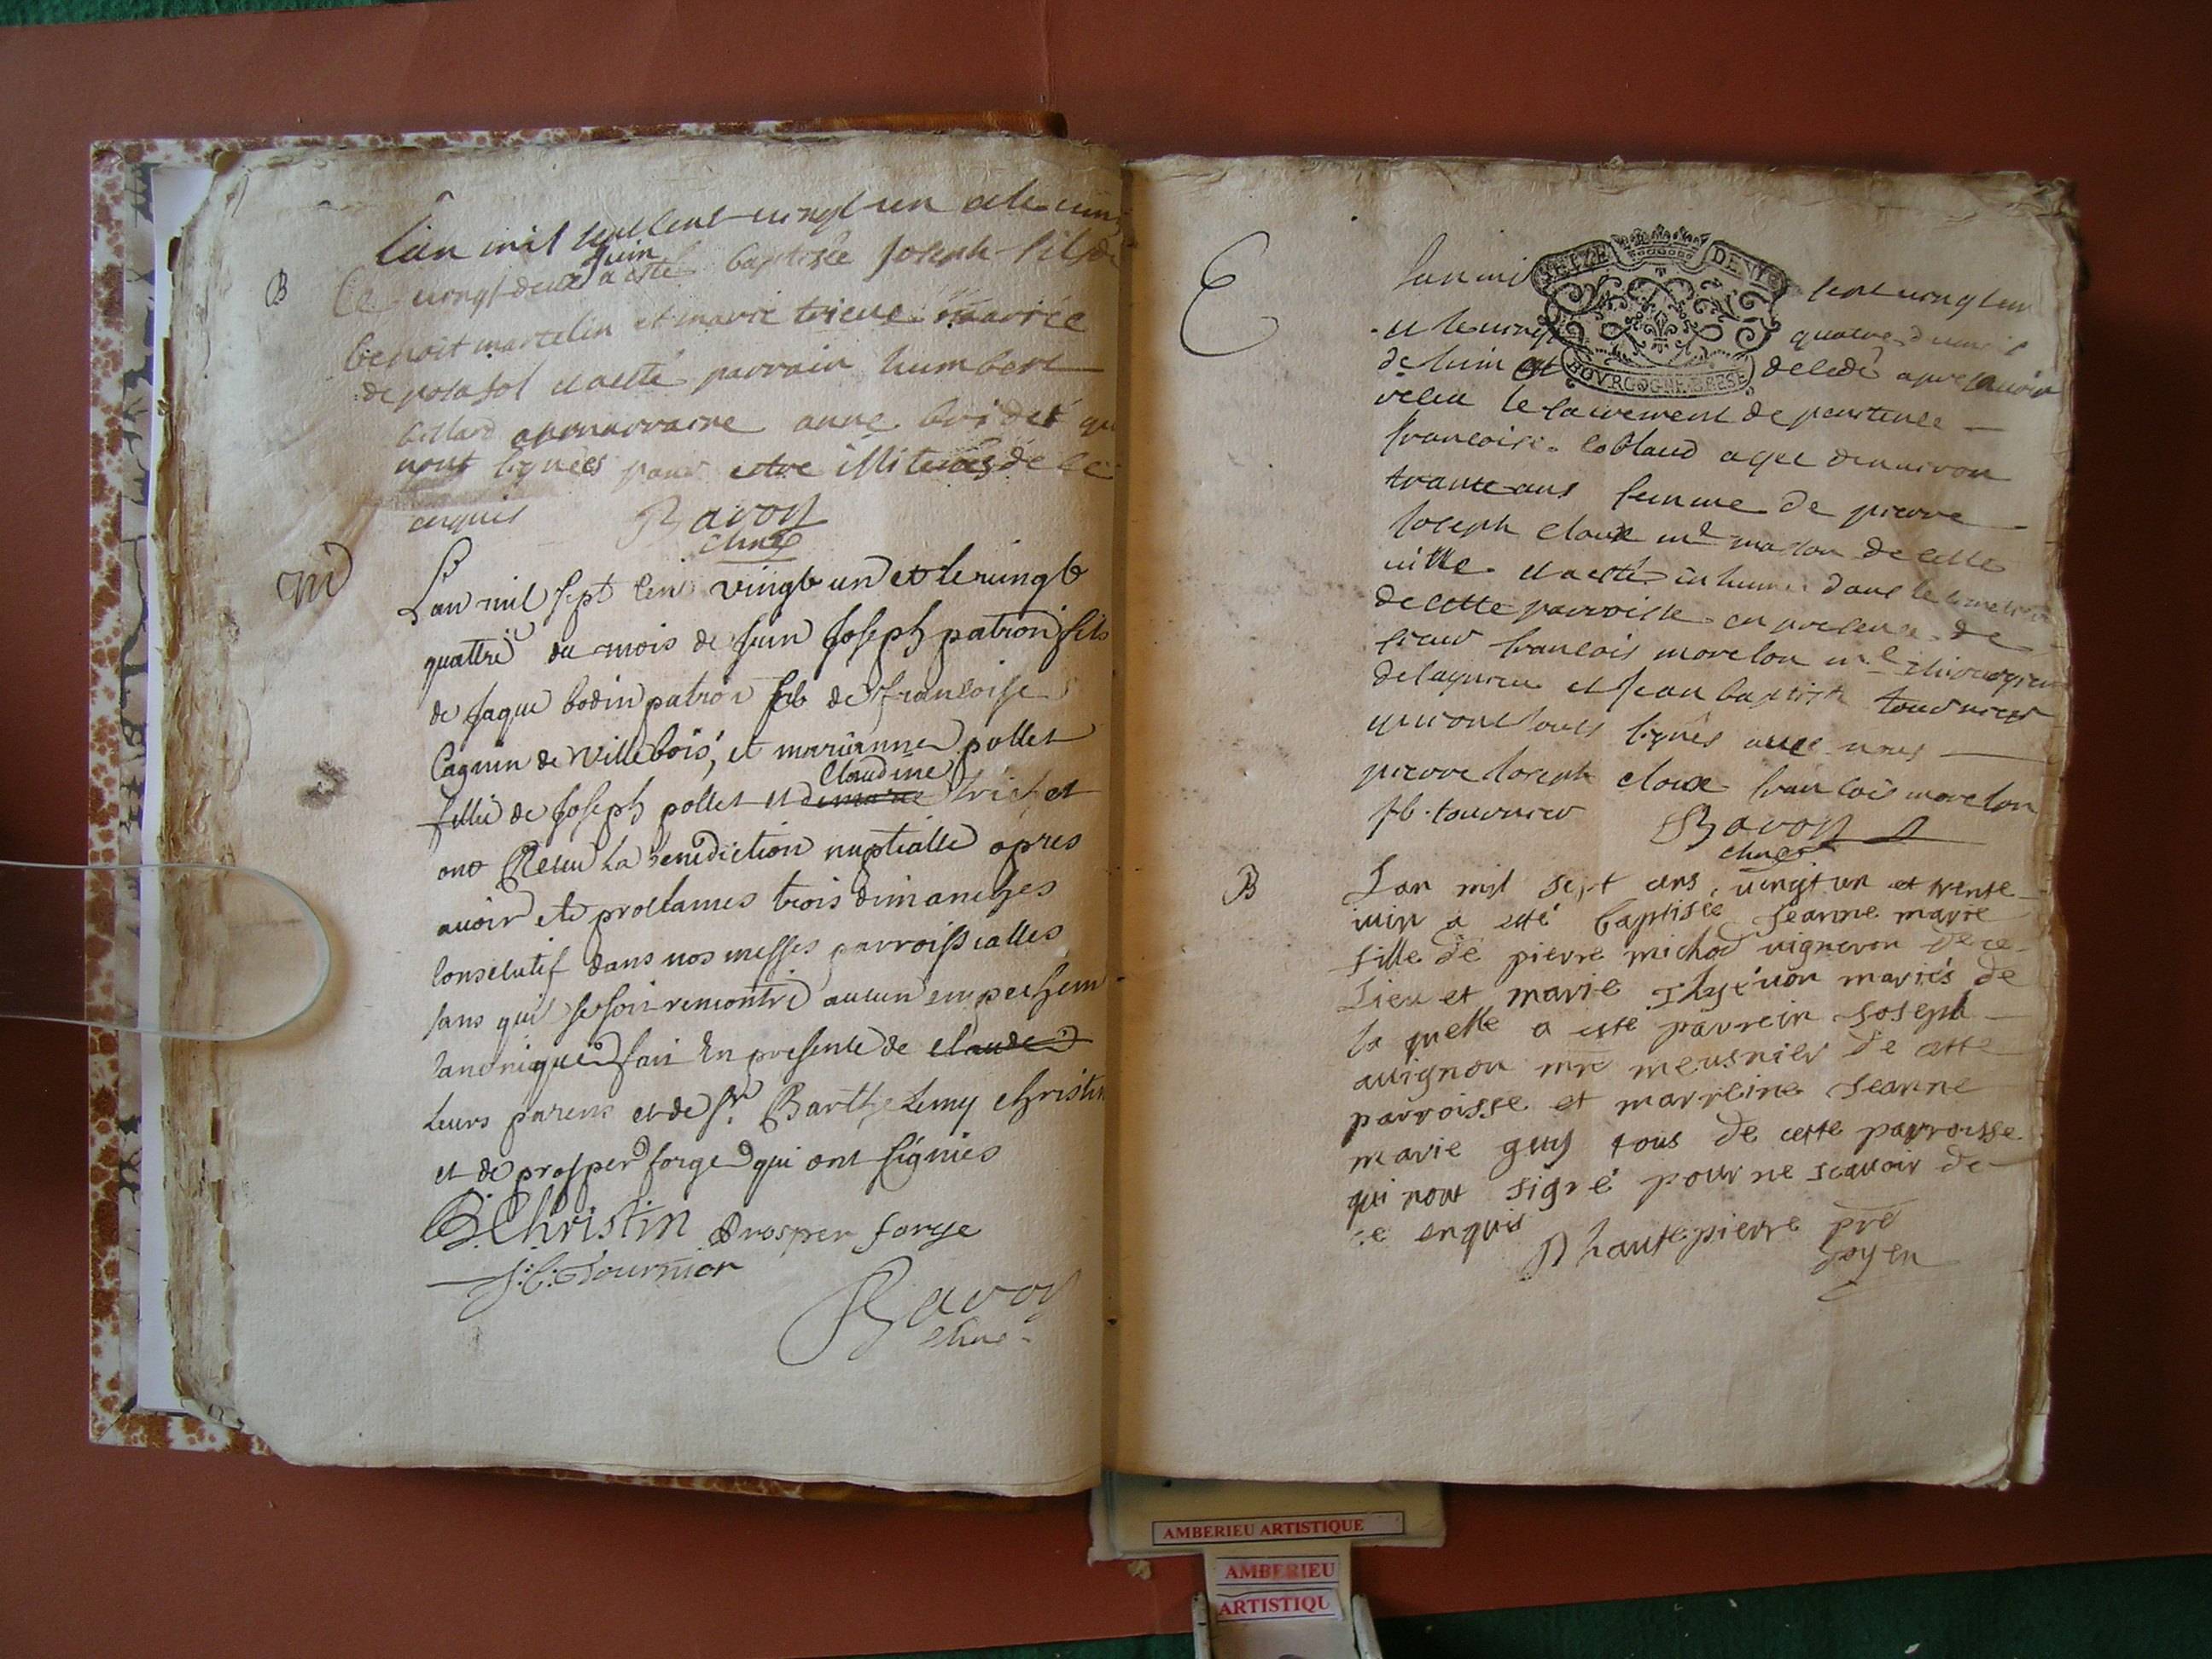 B
Lan mil sept cent vingt un et le
Ce vingt deux juin a esté baptisée Joseph fils de
benoit martelin et marie mariée
de posafol et a esté parrain humbert
billard et marraine anne qui
nont signées pour estre illiterés de ce
enquis Ravon
curé
M
Lan mil sept cent vingt un et le vingt
quattre du mois de Juin Joseph patron fils
de Jaque bodin patron et de francoise
Cagnin de Villebois, et marianne pollet
Claudine
fillie de Joseph pollet et demarie et
ont Receu La benediction nuptialle apres
avoir ete proclames trois dimanches
consecutif dans nos messes parroissialles
sans quil se soit rencontré aucun empechem
canonique fait En presence de claude
Leurs parens et de Sr. Barthelemy Christin
et de prosper forge qui ont signies
B. Christin prosper forge
J.C. Tournier
Ravon
curé
E
SEIZE DEN
BOVRGOGNE BRESSE
Lan mil sept vingt un
et le vingt quatre du mois
de Juin est decedé apres avoir
receu le sacrement de penitence
francoise coblaud agee denviron
trante ans femme de pierre
Joseph cloux md de cette
ville et a esté inhumé dans le cimetiere
de cette parroisse en presence de
sieur francois morelon me chirurgien
de lagnieu et Jean baptiste tournier
qui ont touts signés avec nous
pierre Joseph cloux francois morelon
Jb. tournier Ravon
curé
B
Lan mil sept cens vingt un et trente
iuin a esté baptisée Jeanne marie
fille de pierre michod vigneron de ce
Lieu et marie mariés de
la quelle a esté parrein Joseph
avignon mre meusnier de cette
parroisse et marreine Jeanne
marie guy tous de cette parroisse
qui nont signé pour ne scavoir de
ce enquis Dhautepierre pre
Doyen
AMBERIEU ARTISTIQUE
AMBERIEU
ARTISTIQU